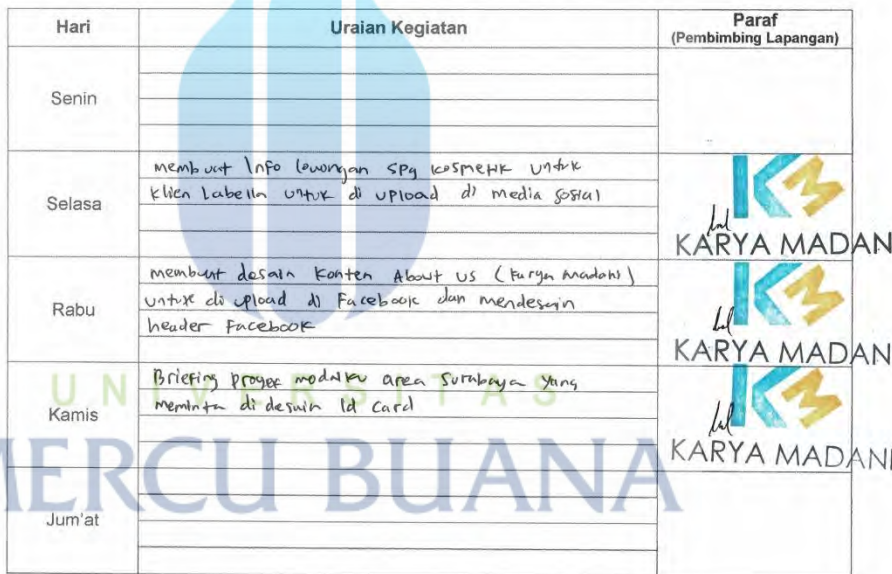 Hari Uraian Kegiatan Paraf
(Pembimbing Lapangan)
Senin
membuat Info lowongan SPG kosmetik untuk
Selasa klien Labella untuk di upload di media sosial
KARYA MADANI
membuat desain konten About us (Karya Madani)
Rabu untuk di upload di Facebook dan mendesain
header Facebook
KARYA MADANI
Briefing proyek modalku area Surabaya yang
UNIVERSITAS
Kamis meminta di desain Id Card
KARYA MADANI
MERCU BUANA
Jum'at